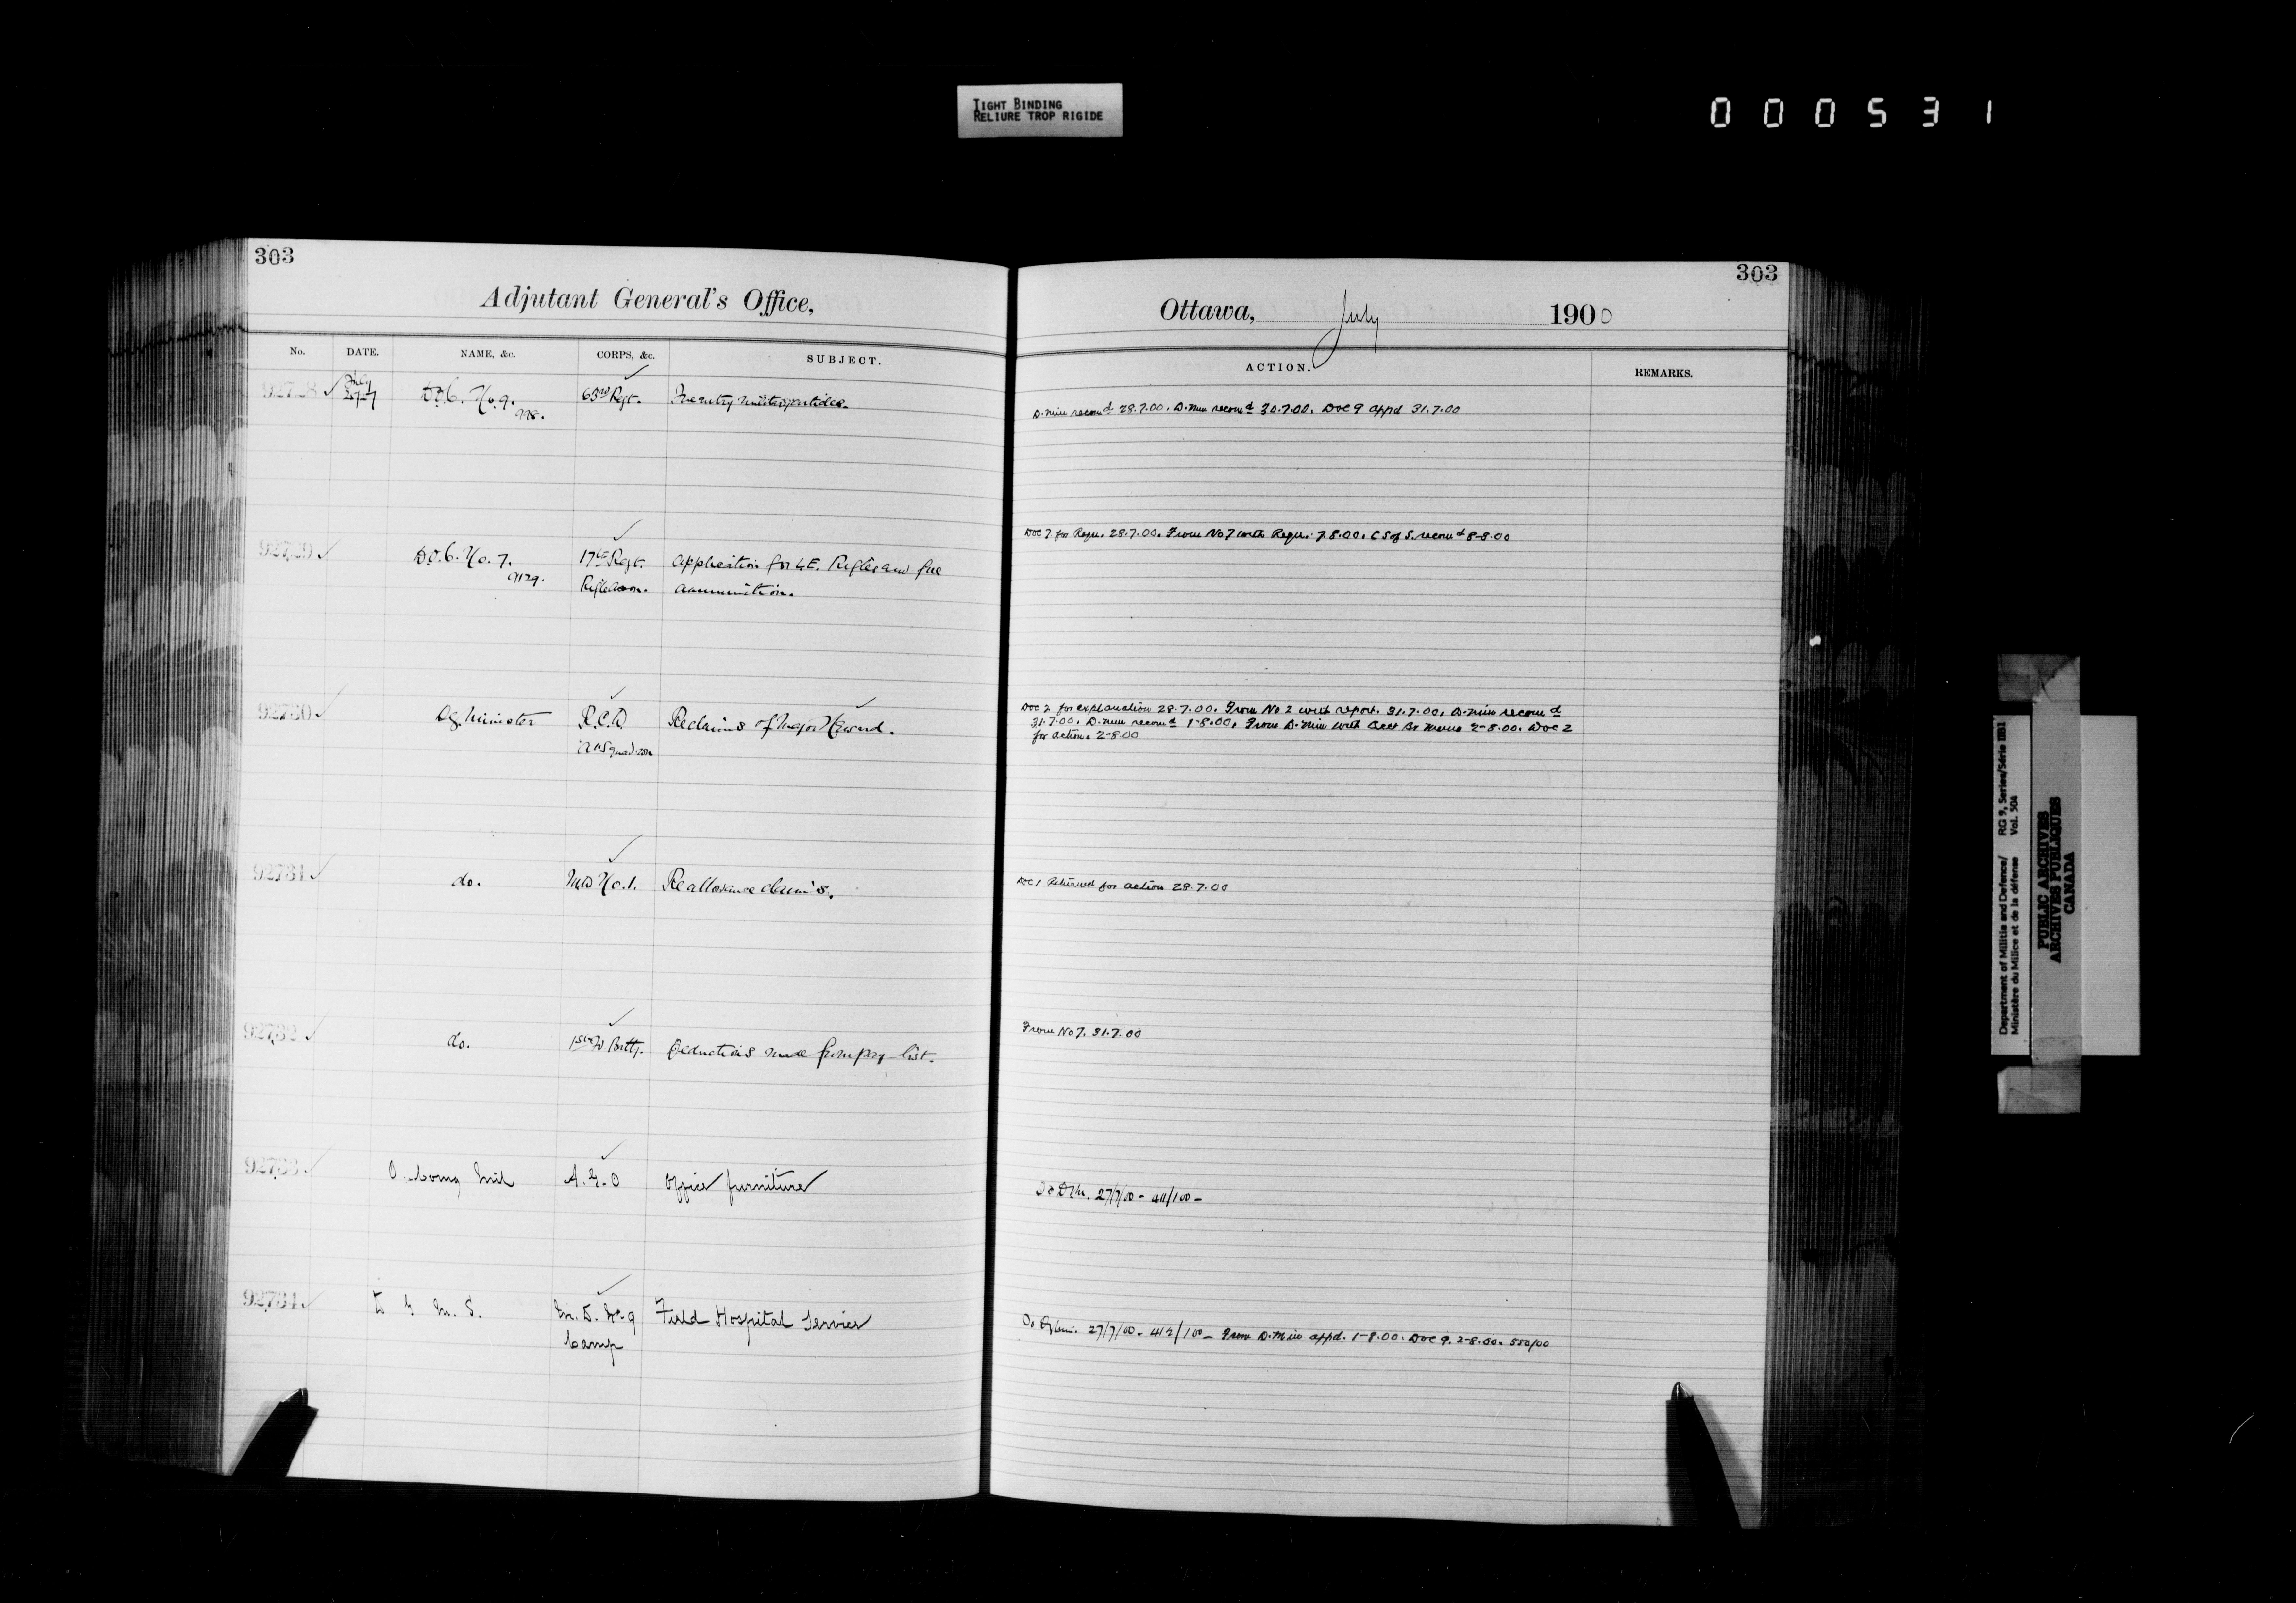 TIGHT BINDING
RELIURE TROP RIGIDE
000531
303
Adjutant General's Office,
No. DATE. NAME, &c. CORPS, &c. SUBJECT.
92728 July 27 D.O.C. No. 9. 63rd Regt.
92729 D.O.C. No. 7. 17th Regt. Application for L.E. Rifles and free
9129. Rifle Assn. ammunition.
92730 Dy. Minister R.C.D. Re claims of Major
"A" Squadron
92731 do. M.D. No. 1. Re allowance claims.
92732 do. 1st Batty. Deductions made from pay list.
92733 O. Comg Mil A.G.O Office furniture
92734 D G M. S. M. D. No. 9 Field Hospital Services
Camp
303
Ottawa, July 1900
ACTION. REMARKS.
D. Min recomd 28.7.00. D. Min recomd 30.7.00. DOC 9 appd 31.7.00
DOC 7 for Requ. 28.7.00. From No 7 with Requ. 7.8.00. C S of S. recomd 8-8-00
DOC 2 for explanation 28.7.00. From No 2 with report. 31.7.00. D. Min recomd
31.7.00. D. Min recomd 1-8.00. From D. Min with Acct Br Memo 2-8.00. DOC 2
for action. 2-8.00
DOC 1 Returned for action 28.7.00
From No 7. 31.7.00
To D M. 27/7/00 - 411/00 -
To Dy Min. 27/7/00 - 412/00 - From D. Min appd. 1-8.00. DOC 9. 2-8.00. 550/00
Department of Militia and Defence/ RG 9, Series/Série IIB1
Ministère du Milice et de la défense Vol. 504
PUBLIC ARCHIVES
ARCHIVES PUBLIQUES
CANADA